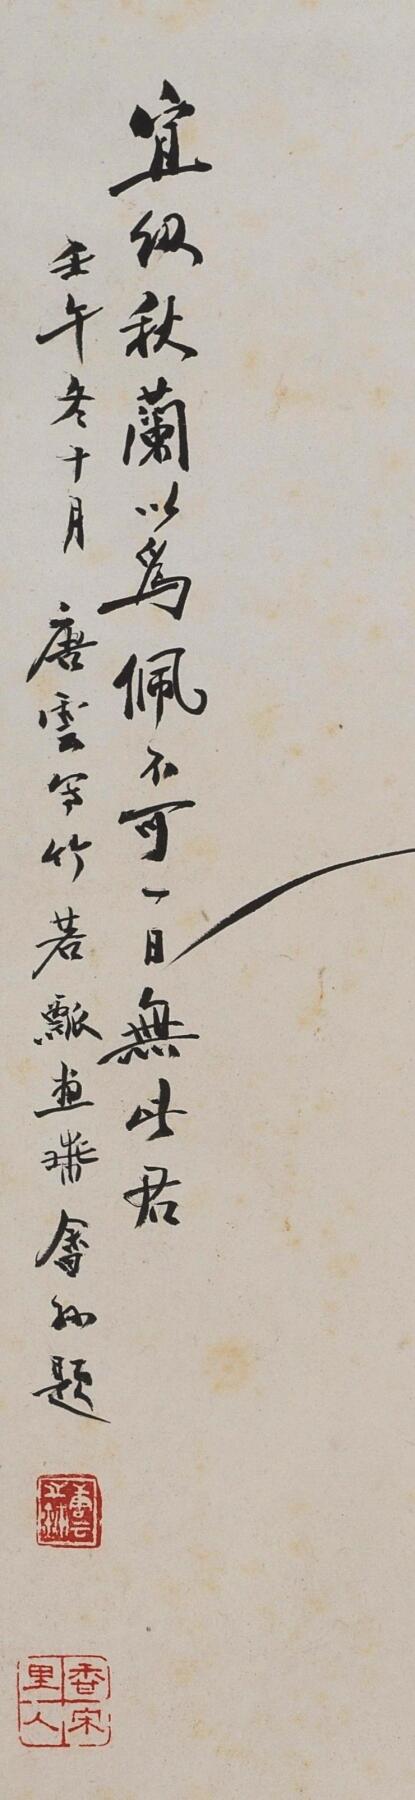 宜纫秋蘭以為佩不可一日無此君
壬午冬十月 唐雲写竹若瓢画蘭會稽題
香宋
里人